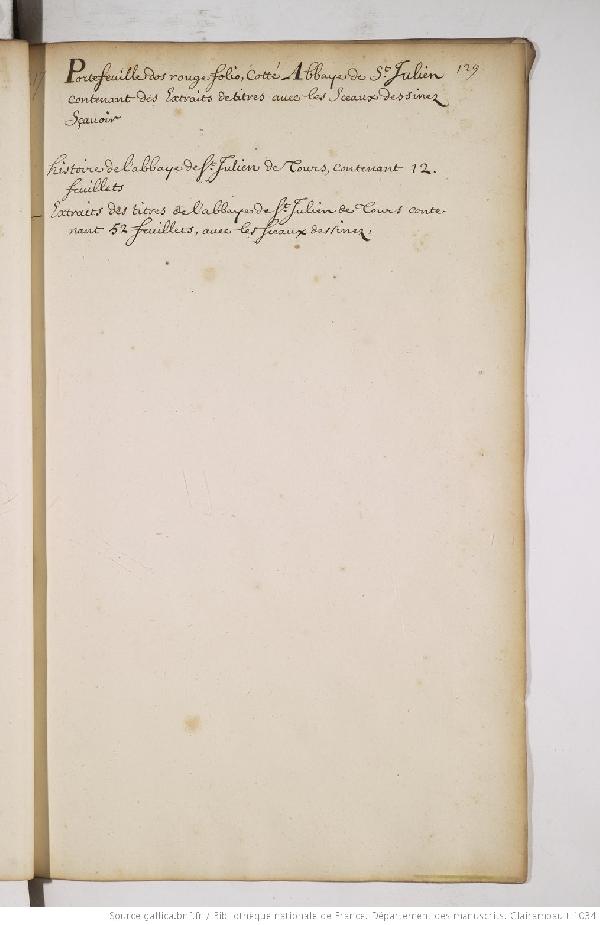 Portefeuille dos rouge folio, Cotté Abbaye de St. Julien 129
contenant des Extraits de titres avec les Sceaux dessinez
Sçavoir
histoire de l'abbaye de St. Julien de Tours, contenant 12.
feuillets
Extraits des titres de l'abbaye de St. Julien de Tours conte-
nant 52 feuillets, avec les sceaux dessinez,
Source gallica.bnf.fr / Bibliothèque nationale de France. Département des manuscrits. Clairambault 1034